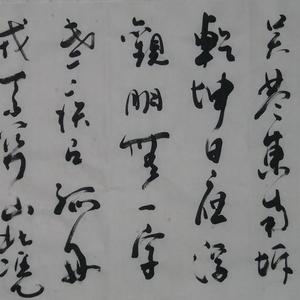 吳楚東南坼
乾坤日夜浮
親朋無一字
老病有孤舟
戎馬關山北